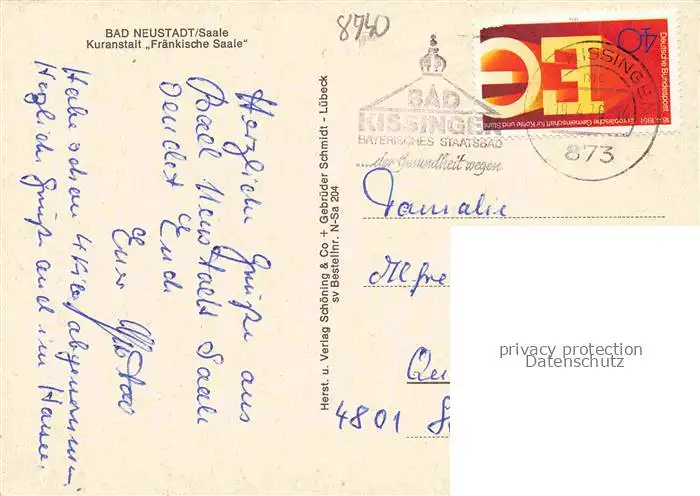 BAD NEUSTADT/Saale
Kuranstalt „Fränkische Saale"
8740
Herzliche Grüße aus
Bad Neustadt Saale
sendet Euch
Euer
Habe schon 4 Kilo abgenommen,
Herzliche Grüße auch im Hause.
Herst. u. Verlag Schöning & Co + Gebrüder Schmidt - Lübeck
sv Bestellnr. N-Sa 204
BAD
KISSINGEN
BAYERISCHES STAATSBAD
...der Gesundheit wegen
KISSINGEN
873
40
Deutsche Bundespost
Europäische Gemeinschaft für Kohle und Stahl
18.4.1951
Familie
Alfre
Qu
4801
privacy protection
Datenschutz